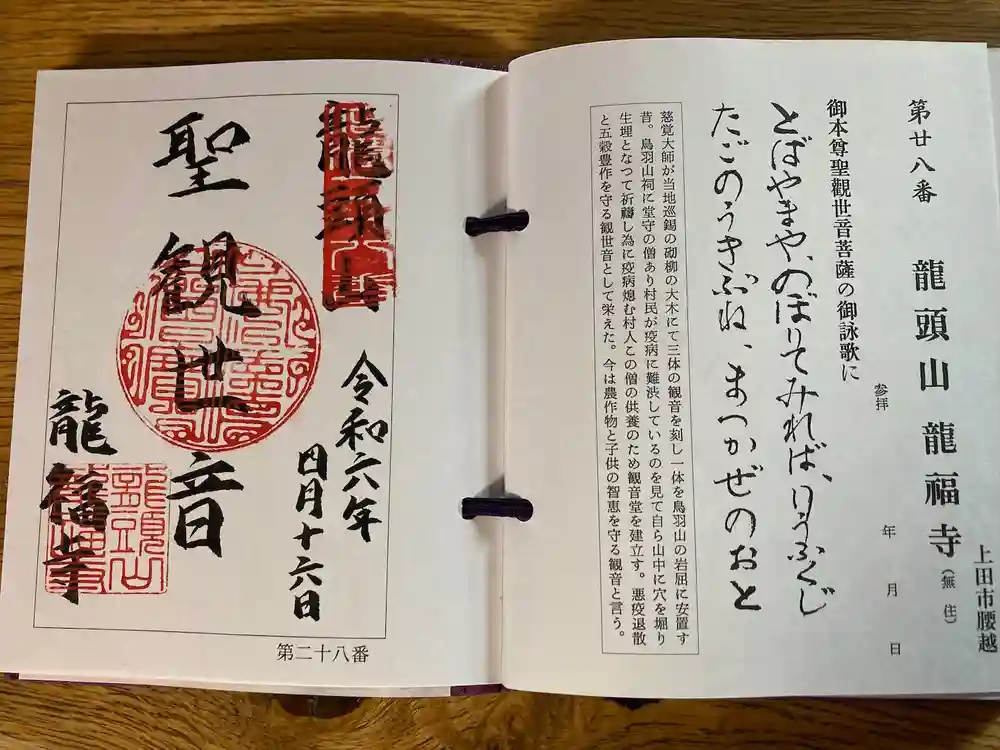 第廿八番　龍頭山　龍福寺（無住）
上田市腰越
参拝　年　月　日
御本尊聖觀世音菩薩の御詠歌に
とばやまや、のぼりてみれば、りうふくじ
たごのうきふね、まつかぜのおと
慈覚大師が当地巡錫の砌柳の大木にて三体の観音を刻し一体を鳥羽山の岩屈に安置す
昔。鳥羽山祠に堂守の僧あり村民が疫病に難渋しているのを見て自ら山中に穴を堀り
生埋となつて祈禱し為に疫病熄む村人この僧の供養のため観音堂を建立す。悪疫退散
と五穀豊作を守る観世音として栄えた。今は農作物と子供の智恵を守る観音と言う。
龍頭山
令和六年
四月十六日
聖観世音
龍福寺
龍頭山
第二十八番